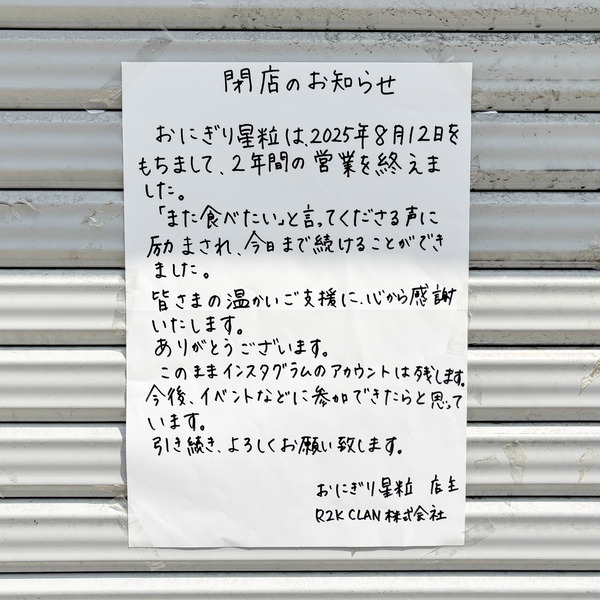 閉店のお知らせ
おにぎり星粒は、2025年8月12日を
もちまして、2年間の営業を終えま
した。
「また食べたい」と言ってくださる声に
励まされ、今日まで続けることができ
ました。
皆さまの温かいご支援に、心から感謝
いたします。
ありがとうございます。
このままインスタグラムのアカウントは残します。
今後、イベントなどに参加できたらと思って
います。
引き続き、よろしくお願い致します。
おにぎり星粒 店主
R2K CLAN 株式会社